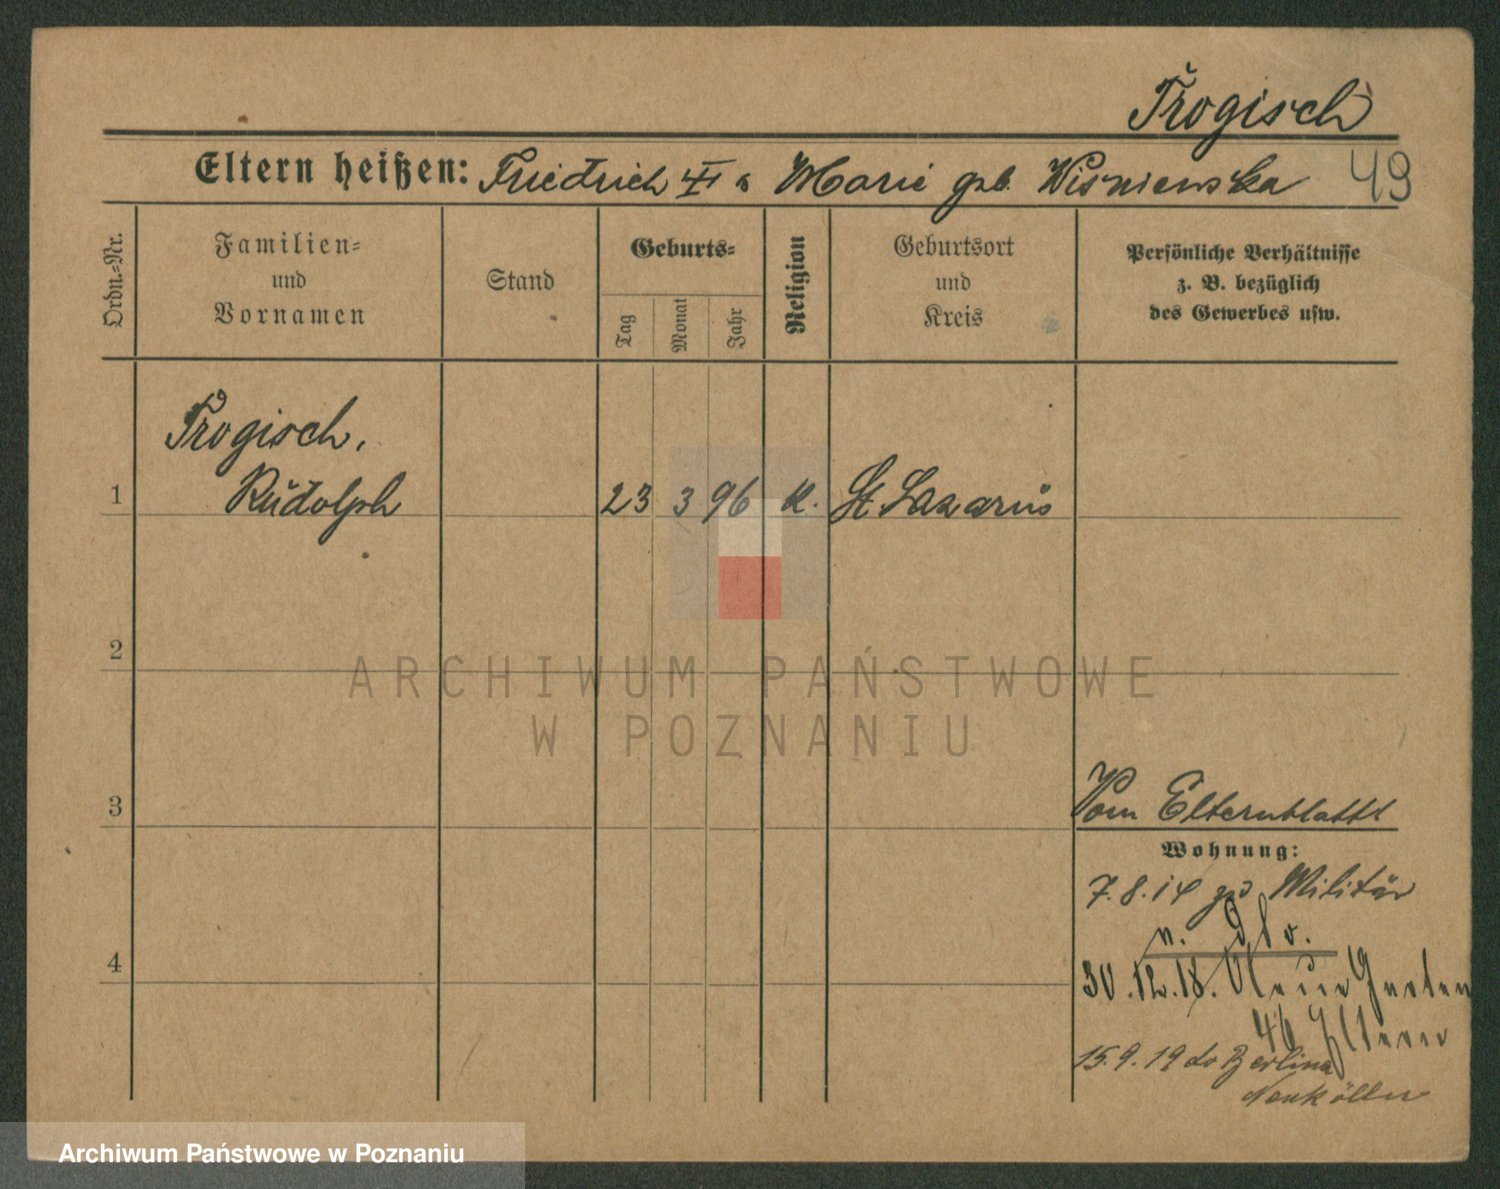 Trogisch
Eltern heißen: Friedrich u Marie geb. Wisniewska 49
Ordn.=Nr.
Familien=
und
Vornamen
Stand
Geburts=
Tag
Monat
Jahr
Religion
Geburtsort
und
Kreis
Persönliche Verhältnisse
z. B. bezüglich
des Gewerbes usw.
Trogisch,
1 Rudolph 23 3 96 K. St Lazarus
2
ARCHIWUM PAŃSTWOWE
W POZNANIU
3 Vom Elternblatt
Wohnung:
7.8.14 Militär
4
30.12.18. Neue Garten
46 Eltern
15.9.19 Berlin
Neukölln
Archiwum Państwowe w Poznaniu